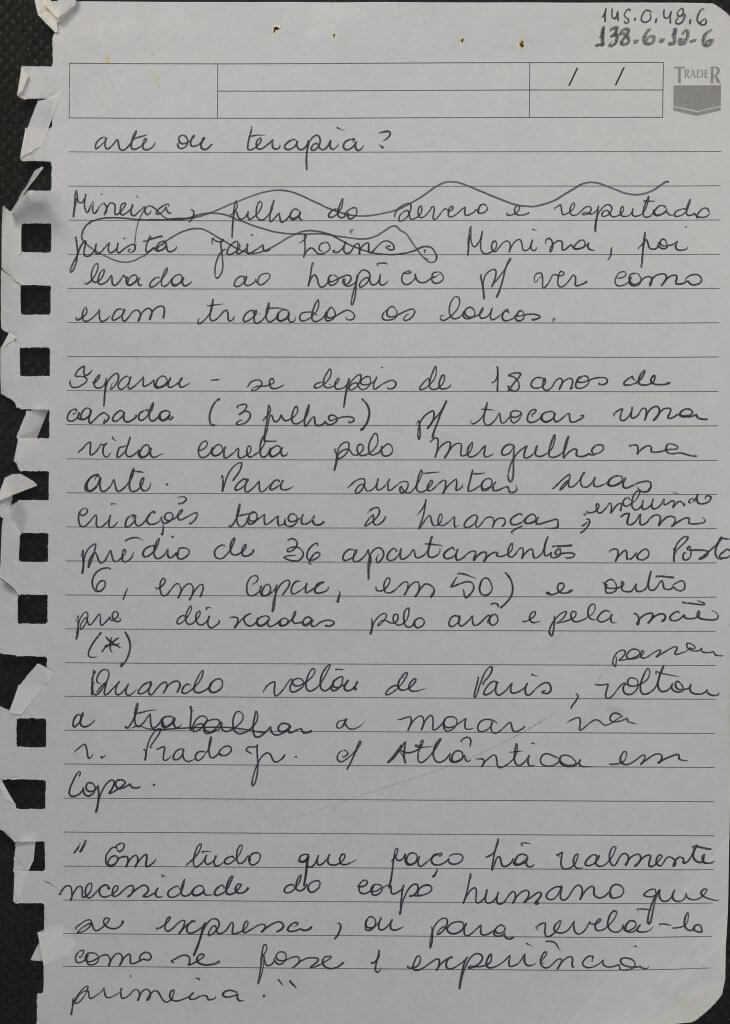 145.0.48.6
138.6.12-6
/ /
TRADER
arte ou terapia?
Mineira, filha do severo e respeitado
jurista Jair Lins. Menina, foi
levada ao hospício p/ ver como
eram tratados os loucos.
Separou-se depois de 18 anos de
casada (3 filhos) p/ trocar uma
vida careta pelo mergulho na
arte. Para sustentar suas
incluindo
criações torrou 2 heranças, um
prédio de 36 apartamentos no Posto
6, em Copac, em 50) e outro
pre deixadas pelo avô e pela mãe
(*)
passou
Quando voltou de Paris, voltou
a trabalhar a morar na
r. Prado Jr. c/ Atlântica em
Copa.
"Em tudo que faço há realmente
necessidade do corpo humano que
se expressa, ou para revelá-lo
como se fosse 1 experiência
primeira."